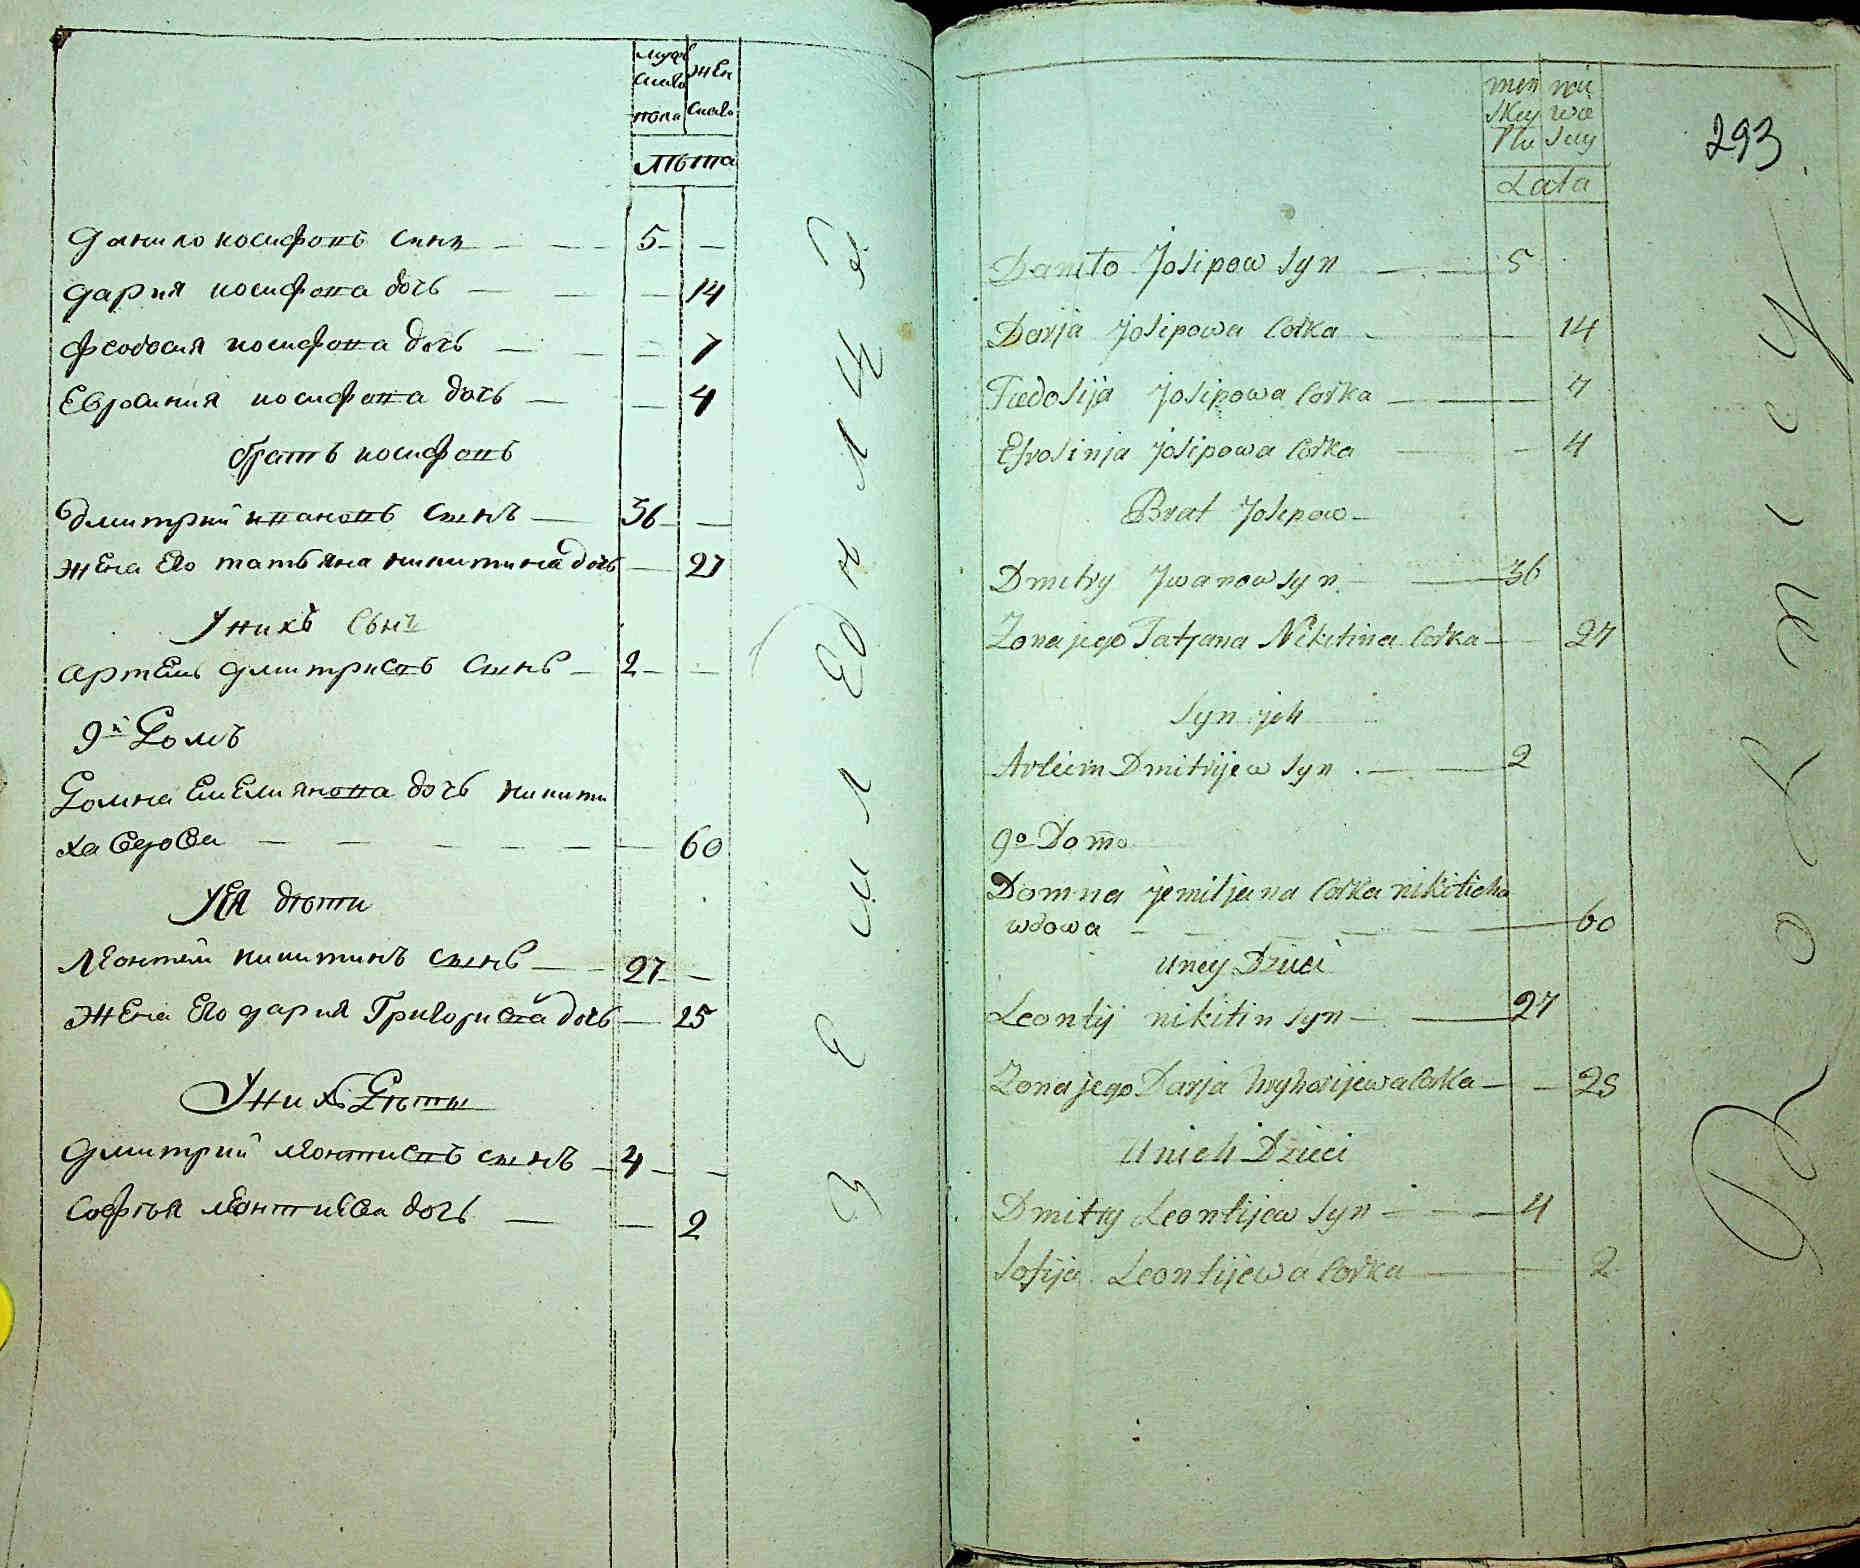 мужеска пола
женска
лѣта
Данило иосифовъ синъ — — — 5 —
Дария иосифова дочь — — — 14
Феодосия иосифова дочь — — — 7
Евросиния иосифова дочь — — 4
братъ иосифовъ
Дмитрий ивановъ синъ — 36 —
Жена его татьяна никитина дочь — 27
У нихъ синъ
Артемъ дмитриевъ синъ — 2 — —
9й Домъ
Домна Емелиянова дочь никити
ха вдова — — — — — — 60
У ея дѣти
Леонтий никитинъ синъ — — 27 —
Жена его дария Григориева дочь — 25
У нихъ Дѣти
Дмитрий леонтиевъ синъ — 4 — —
София леонтиева дочь — — 2
293
Lata
Daniło Josipow syn — — 5
Darja Josipowa Corka — — 14
Fiedosija Josipowa Corka — — 7
Efrosinja Josipowa Corka — — 4
Brat Josipow
Dmitry Jwanow syn — 36
Zona jego Tatjana Nikitina Corka — — 27
Syn jch
Artiem Dmitrijew syn — — 2
9o Domo
Domna jemiljana Corka nikiticha
wdowa — — — — — — 60
uney Dzieci
Leontij nikitin syn — — 27
Zona jego Darja hryhorijewa Corka — — 25
Unich Dzieci
Dmitry Leontijew syn — — — 4
Sofija Leontijewa Corka — — 2